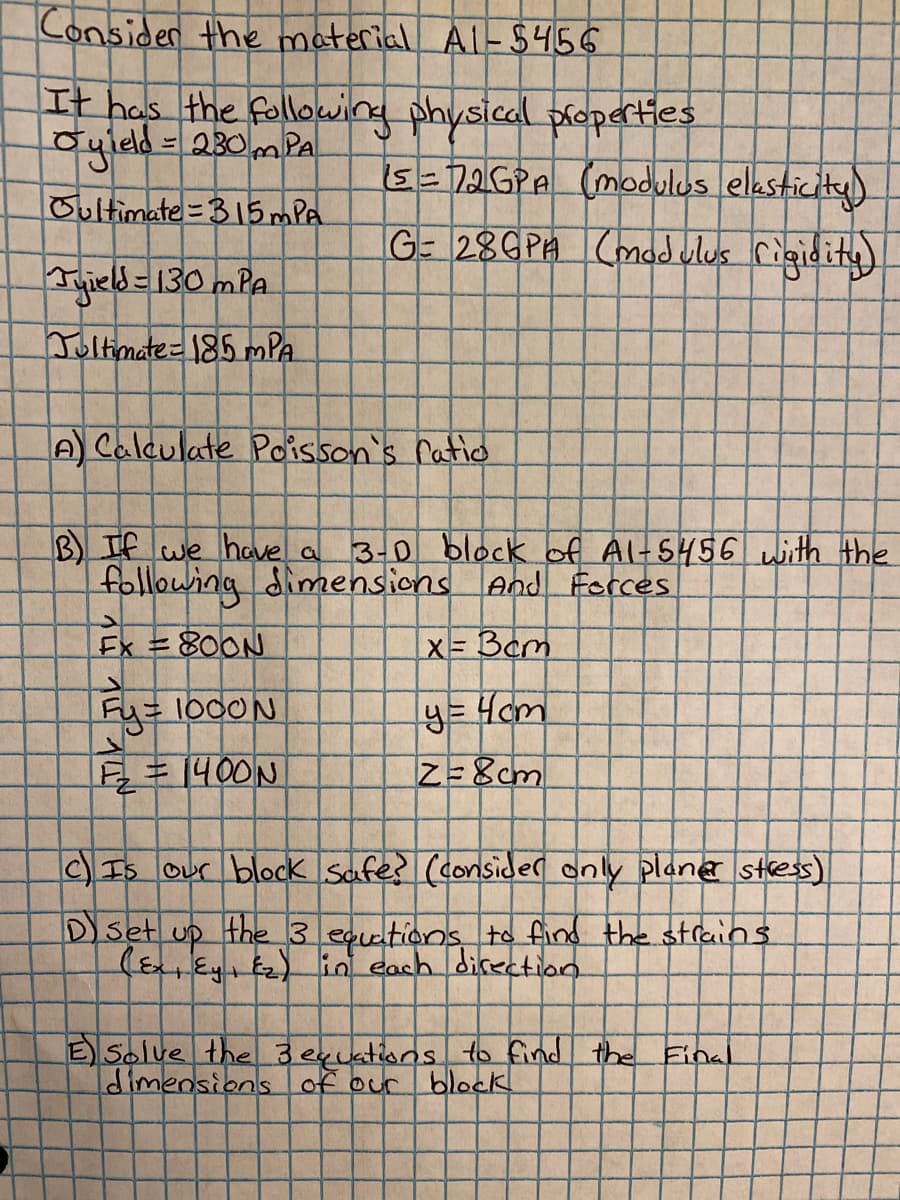 Consider the material Al-5456
It has the following physical properties
σyield = 230 mPA
E = 72 GPA (modulus elasticity)
σultimate = 315 mPA
G = 28 GPA (modulus rigidity)
τyield = 130 mPA
τultimate = 185 mPA
A) Calculate Poisson's ratio
B) If we have a 3-D block of Al-5456 with the
following dimensions And Forces
F⃗x = 800N
x = 3cm
F⃗y = 1000N
y = 4cm
F⃗z = 1400N
z = 8cm
C) Is our block safe? (consider only planer stress)
D) set up the 3 equations to find the strains
(εx, εy, εz) in each direction
E) Solve the 3 equations to find the Final
dimensions of our block